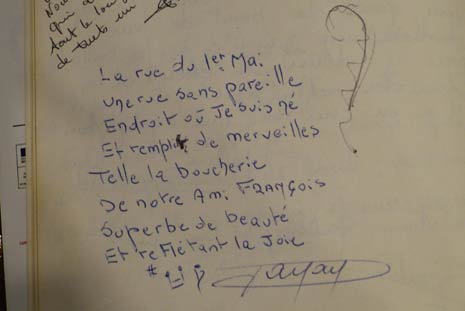 qui a
tout le lon
de toute un
La rue du 1er Mai
une rue sans pareille
Endroit où Je suis né
Et remplit de merveilles
Telle la boucherie
De notre Ami FRANÇOIS
Superbe de beauté
Et reflétant la Joie